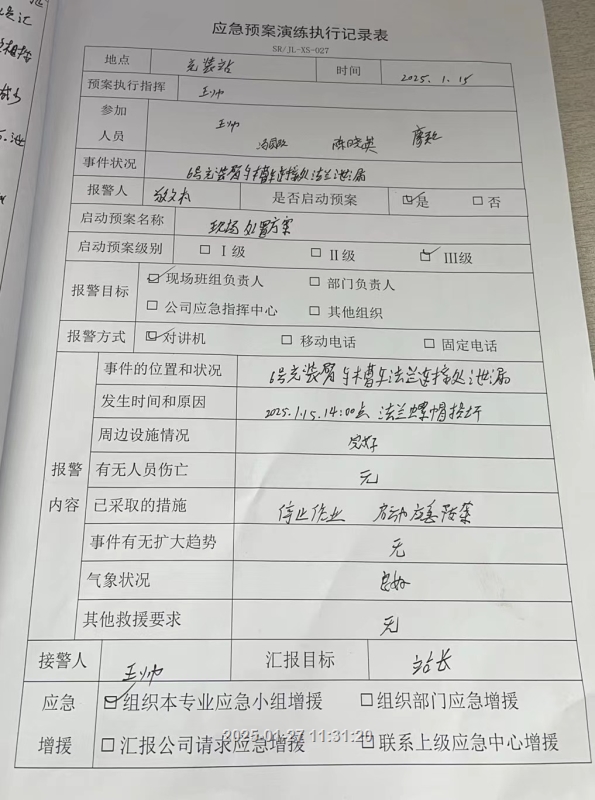 应急预案演练执行记录表
SR/JL-XS-027
地点 充装站 时间 2025.1.15
预案执行指挥 王帅
参加人员 王帅 陈晓英
事件状况 6号充装臂与槽车连接处法兰泄漏
报警人 是否启动预案 ☑是 □否
启动预案名称 现场处置方案
启动预案级别 □Ⅰ级 □Ⅱ级 ☑Ⅲ级
报警目标 ☑现场班组负责人 □部门负责人
□公司应急指挥中心 □其他组织
报警方式 ☑对讲机 □移动电话 □固定电话
报警内容
事件的位置和状况 6号充装臂与槽车法兰连接处泄漏
发生时间和原因 2025.1.15.14:00点 法兰螺帽损坏
周边设施情况 完好
有无人员伤亡 无
已采取的措施 停止作业 启动应急预案
事件有无扩大趋势 无
气象状况 良好
其他救援要求 无
接警人 王帅 汇报目标 站长
应急增援
☑组织本专业应急小组增援 □组织部门应急增援
□汇报公司请求应急增援 □联系上级应急中心增援
2025-01-27 11:31:20